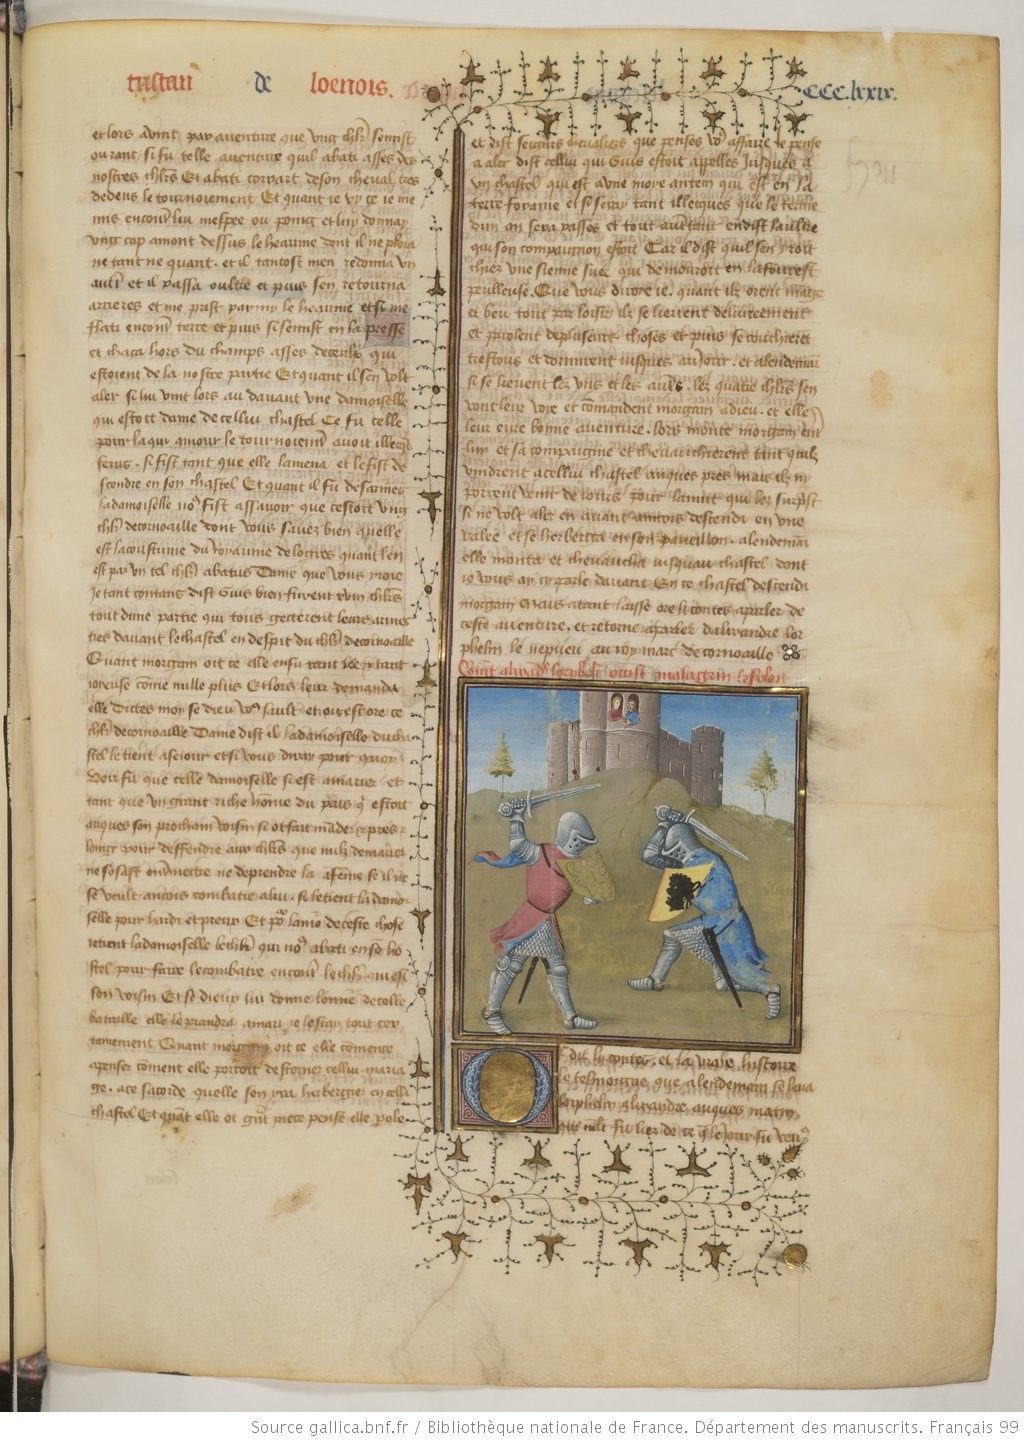 tristan de loenois. CCC.lxxix.
et lors avint par aventure que ung chlr se mist
ou ranc si fu telle aventure quil abati asses des
nostres chlrs Et abati corvart de son cheval tres
dedens le tournoiement Et quant ie vy ce ie me
ung cop amont dessus le heaume dont il ne ploia
ne tant ne quant. et il tantost men redonna un
aultre et il passa oultre et puis sen retourna
arrieres et me prist parmy le heaume et si me
flati encontre terre et puis se remist en la presse
et chaca hors du champs asses de ceulx qui
estoient de la nostre partie Et quant il sen volt
aler si lui vint lors au davant une damoiselle
qui estoit dame de cellui chastel Ce fu celle
pour la qui amour le tournoiement avoit illecques
ferus. si fist tant que elle lamena et le fist de
scendre en son chastel Et quant il fu desarmes
la damoiselle nous fist assavoir que cestoit ung
chlr de cornoaille dont vous savez bien quelle
est la coustume du royaume de logres quant len
est par un tel chlr abatus Dame que vous yroie
je tant contant dist Guis bien furent chlrs
tout dune partie qui tous getterent leurs armes
davant le chastel en despit du chlr de cornoaille
Quant morgain oit ce elle en fu tant lee tant
ioieuse comme nulle plus Et lors leur demanda
elle Dictes moy se dieu vous sault et ou est ore ce
chlr de cornoaille Dame dist il la damoiselle du cha
stel le tient a seiour et si vous diray pour quoy
Voir fu que celle damoiselle si est a marier et
tant que un grant riche homme du pais qui estoit
auques son prochain voisin
ne sosast entremettre de prendre la a feme se il ne
se veult ancois combatre a lui. si le tient la damoi
selle pour hardi et preux Et pour lamour de ceste chose
retient la damoiselle le chlr qui nous abati en se ho
stel pour faire le combatre encontre le chlr qui est
son voisin Et se dieux lui donne lonneur de celle
bataille elle le prendra a mari
tamement Quant morgain oit ce elle commence
a penser comment elle porroit destorner cellui maria
ge. a ce sacorde quelle sen yra herbergier en celli
chastel Et quant elle ot grant piece pense elle parole
et dist seigneurs chevaliers que penses vous affaire Je pense
a aler dist cellui qui Guis estoit appelles Jusques a
un chastel qui est a une moye antein qui est en la
terre foraine et si seray tant illecques que le terme
dun an sera passes et tout autretant en dist laultre
qui son compaignon estoit Car il dist quil sen yroit
chiez une sienne suer qui demoroit en la fourest
perilleuse. Que vous diroie ie. quant ilz orent mangie
et beu tout par loisir ilz se lievent delivreement
et parolent de plusieurs choses et puis se coucherent
trestous et dormirent iusques au iour. et a lendemain
si se lieverent les uns et les autres. les quatre chlrs sen
vont leur voye et commandent morgain a dieu. et elle
leur eure bonne aventure. lors monte morgain
et sa compaignie et chevauchierent tant quilz
vindrent a cellui chastel auques pres mais ilz ny
porrent venir de iours pour la nuit qui les surprist
si ne volt aler en avant ancois descendi en une
valee et se herberga en son paveillon. a lendemain
elle monta et chevaucha iusquau chastel dont
ie vous ay cy parle davant. En ce chastel descendi
morgain Mais a tant laisse ore li contes a parler de
ceste aventure. et retorne a parler dalixandre lor
phelin le nepveu au roy marc de cornoaille
Comment alixandre lorphelin occist malagrin le felon
Or dit ly contes. et la vraie histoire
le tesmoigne que a lendemain se leva
lorphelin alixandre auques matin